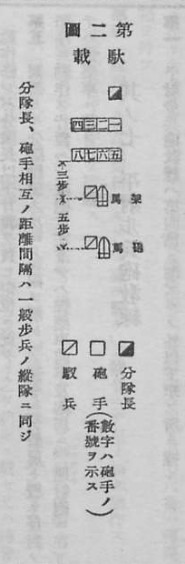 第二圖
馱載
一二三四
五六七八
架馬
三步
五步
砲馬
分隊長
砲手(數字ハ砲手ノ番號ヲ示ス)
馭兵
分隊長、砲手相互ノ距離間隔ハ一般步兵ノ縱隊ニ同ジ